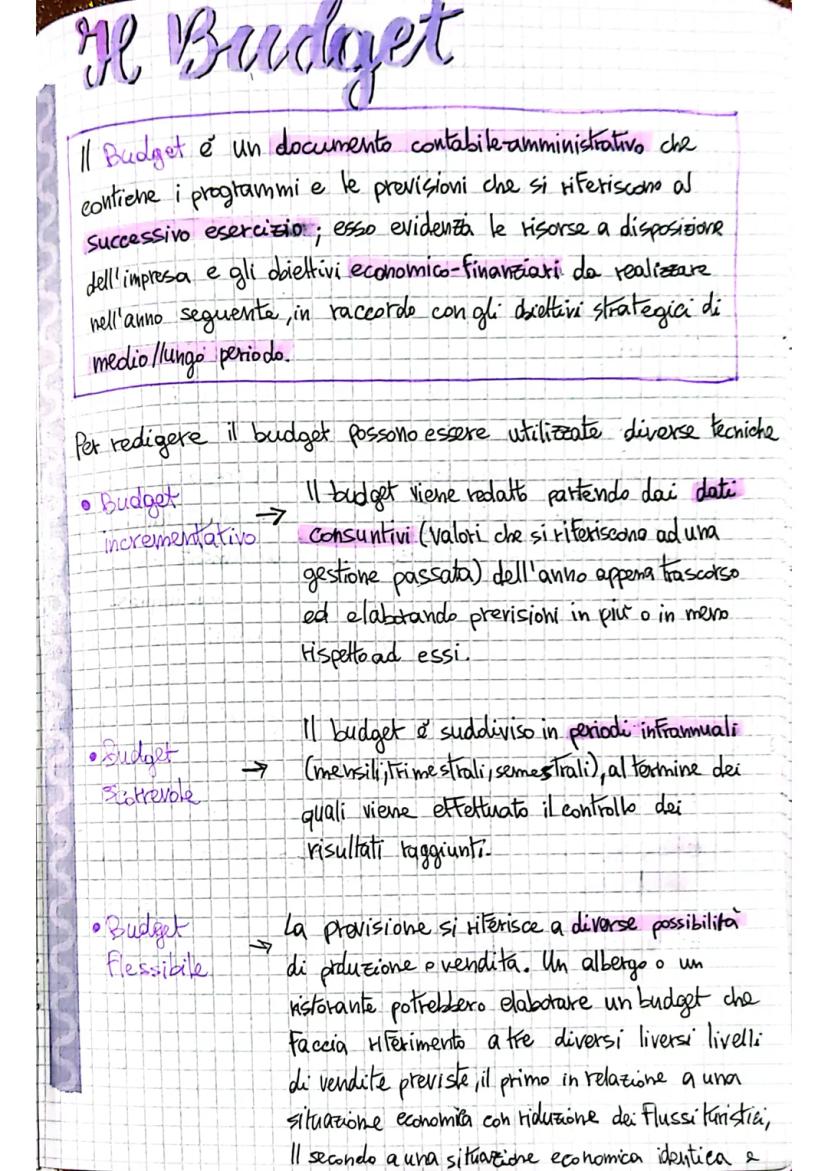 Il Budget
Il Budget è un documento contabile-amministrativo che
contiene i programmi e le previsioni che si riferiscono al
successivo esercizio; esso evidenzia le risorse a disposizione
dell'impresa e gli obiettivi economico-finanziari da realizzare
nell'anno seguente, in raccordo con gli obiettivi strategici di
medio/lungo periodo.
Per redigere il budget possono essere utilizzate diverse tecniche
• Budget
incrementativo
→ Il budget viene redatto partendo dai dati
consuntivi (valori che si riferiscono ad una
gestione passata) dell'anno appena trascorso
ed elaborando previsioni in più o in meno
rispetto ad essi.
• Budget
Scorrevole
→ Il budget è suddiviso in periodi infrannuali
(mensili, trimestrali, semestrali), al termine dei
quali viene effettuato il controllo dei
risultati raggiunti.
• Budget
flessibile
→ La previsione si riferisce a diverse possibilità
di produzione e vendita. Un albergo o un
ristorante potrebbero elaborare un budget che
faccia riferimento a tre diversi liversi livelli
di vendite previste, il primo in relazione a una
situazione economica con riduzione dei flussi turistici,
Il secondo a una situazione economica identica e